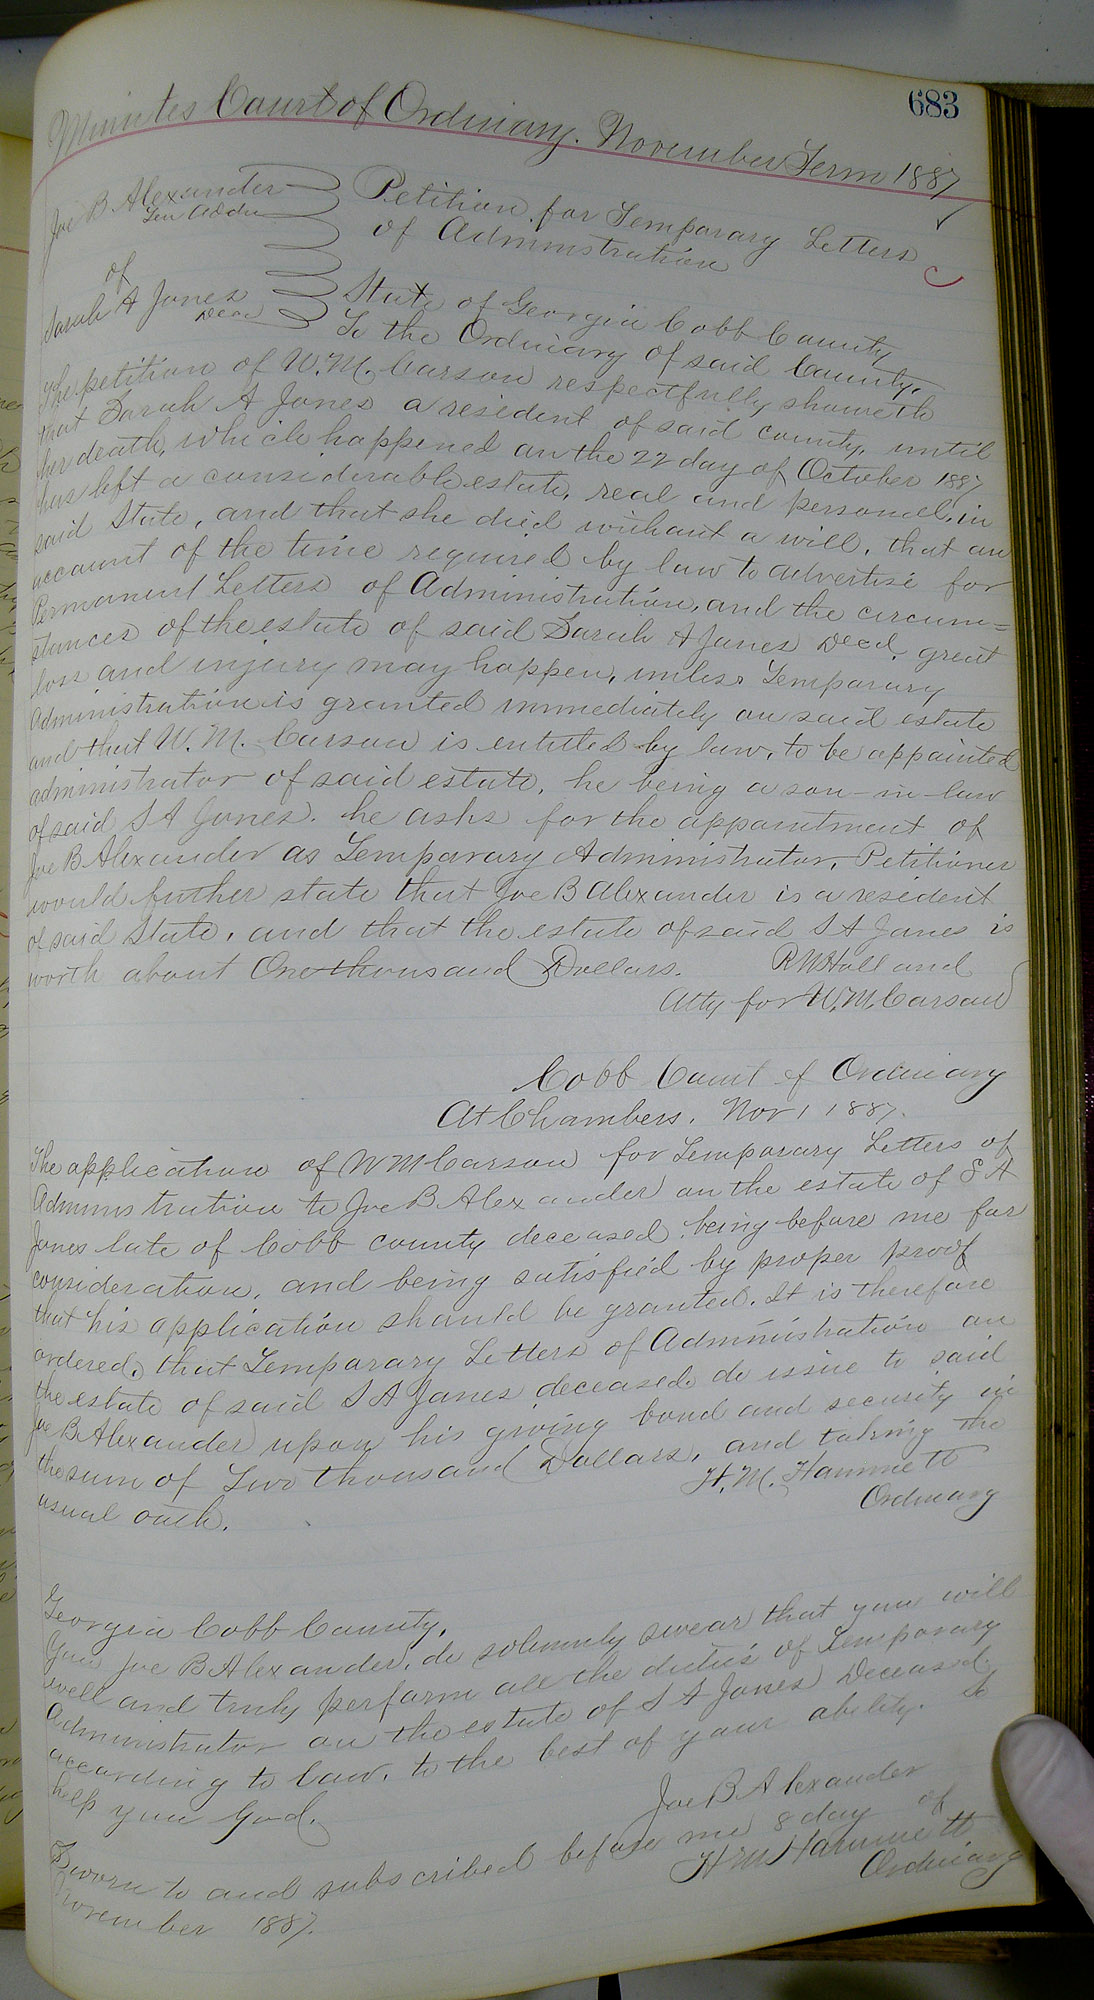 683
Minutes Court of Ordinary. November Term 1887
Joe B Alexander
Tem Addm
of
Sarah A Jones
Decd
Petition for Temporary Letters
of Administration
State of Georgia Cobb County
To the Ordinary of said County,
The petition of W. M. Carson respectfully showeth
that Sarah A Jones a resident of said county, until
her death, which happened on the 22 day of October 1887
has left a considerable estate, real and personal, in
said State, and that she died without a will, that on
account of the time required by law to advertise for
Permanent Letters of Administration, and the circum=
stances of the estate of said Sarah A Jones Decd, great
loss and injury may happen, unless Temporary
Administration is granted immediately on said estate
and that W. M. Carson is entitled by law, to be appointed
administrator of said estate, he being a son-in-law
of said S A Jones. he asks for the appointment of
Joe B Alexander as Temporary Administrator, Petitioner
would further state that Joe B Alexander is a resident
of said State, and that the estate of said S A Jones is
worth about One thousand Dollars. R N Holland
Atty for W. M. Carson
Cobb Court of Ordinary
At Chambers, Nov 1 1887.
The application of W M Carson for Temporary Letters of
Administration to Joe B Alexander on the estate of S A
Jones late of Cobb county deceased, being before me for
consideration, and being satisfied by proper proof
that his application should be granted. It is therefore
ordered, that Temporary Letters of Administration on
the estate of said S A Jones deceased do issue to said
Joe B Alexander upon his giving bond and security in
the sum of Two thousand Dollars, and taking the
usual oath. H. M. Hammett
Ordinary
Georgia Cobb County,
You Joe B Alexander, do solemnly swear that you will
well and truly perform all the duties of Temporary
Administrator on the estate of S A Jones Deceased,
according to law, to the best of your ability. So
help you God.
Joe B Alexander
Sworn to and subscribed before me 8 day of
November 1887. H M Hammett
Ordinary